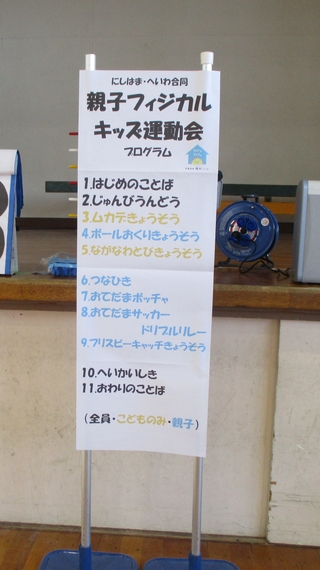 にしはま・へいわ合同
親子フィジカル
キッズ運動会
プログラム
1.はじめのことば
2.じゅんびうんどう
3.ムカデきょうそう
4.ボールおくりきょうそう
5.ながなわとびきょうそう
6.つなひき
7.おてだまボッチャ
8.おてだまサッカー
ドリブルリレー
9.フリスビーキャッチきょうそう
10.へいかいしき
11.おわりのことば
(全員・こどものみ・親子)